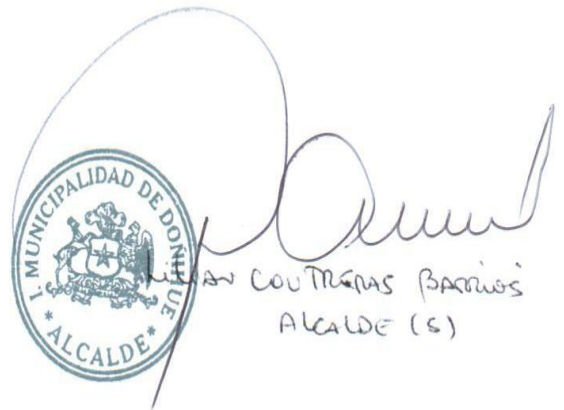 I. MUNICIPALIDAD DE DOÑIHUE
* ALCALDE *
CONTRERAS BARRIOS
ALCALDE (S)